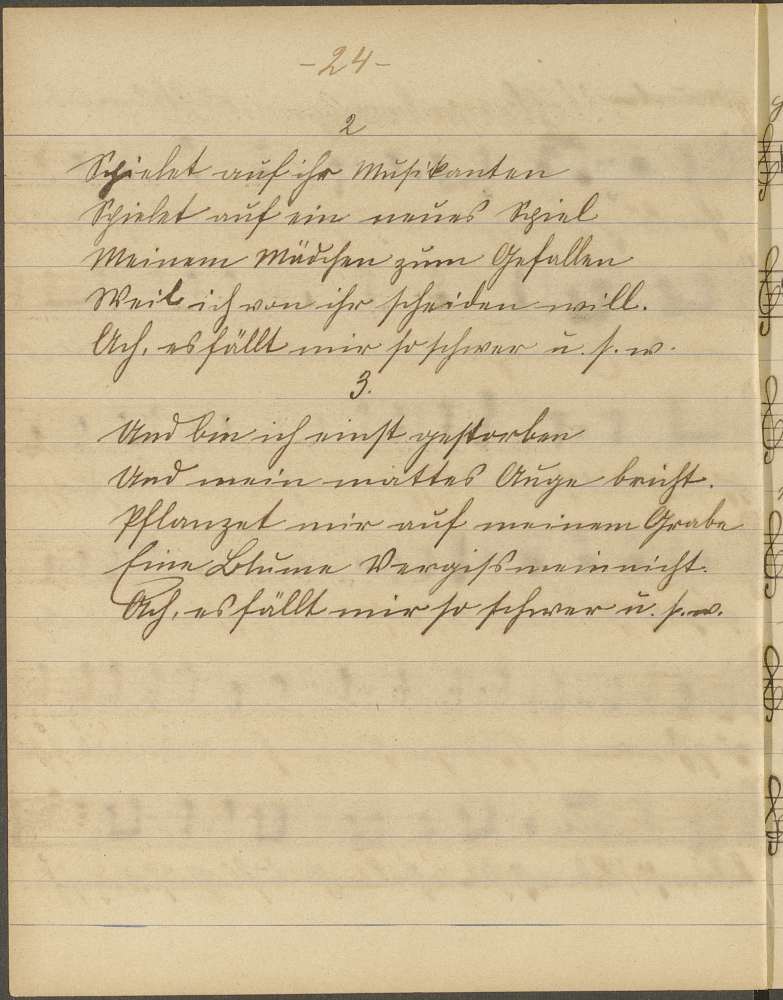 -24-
2
Spielet auf ihr Musikanten
Spielet auf ein neues Spiel
Meinem Mädchen zum Gefallen
Weil ich von ihr scheiden will.
Ach, es fällt mir so schwer u. s. w.
3.
Und bin ich einst gestorben
Und mein mattes Auge bricht.
Pflanzet mir auf meinem Grabe
Eine Blume Vergissmeinnicht.
Ach, es fällt mir so schwer u. s. w.